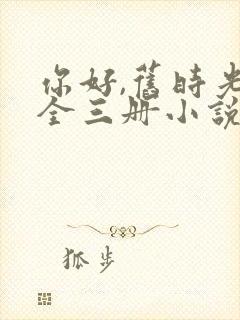 你好,舊時光
全三册小說
狐步